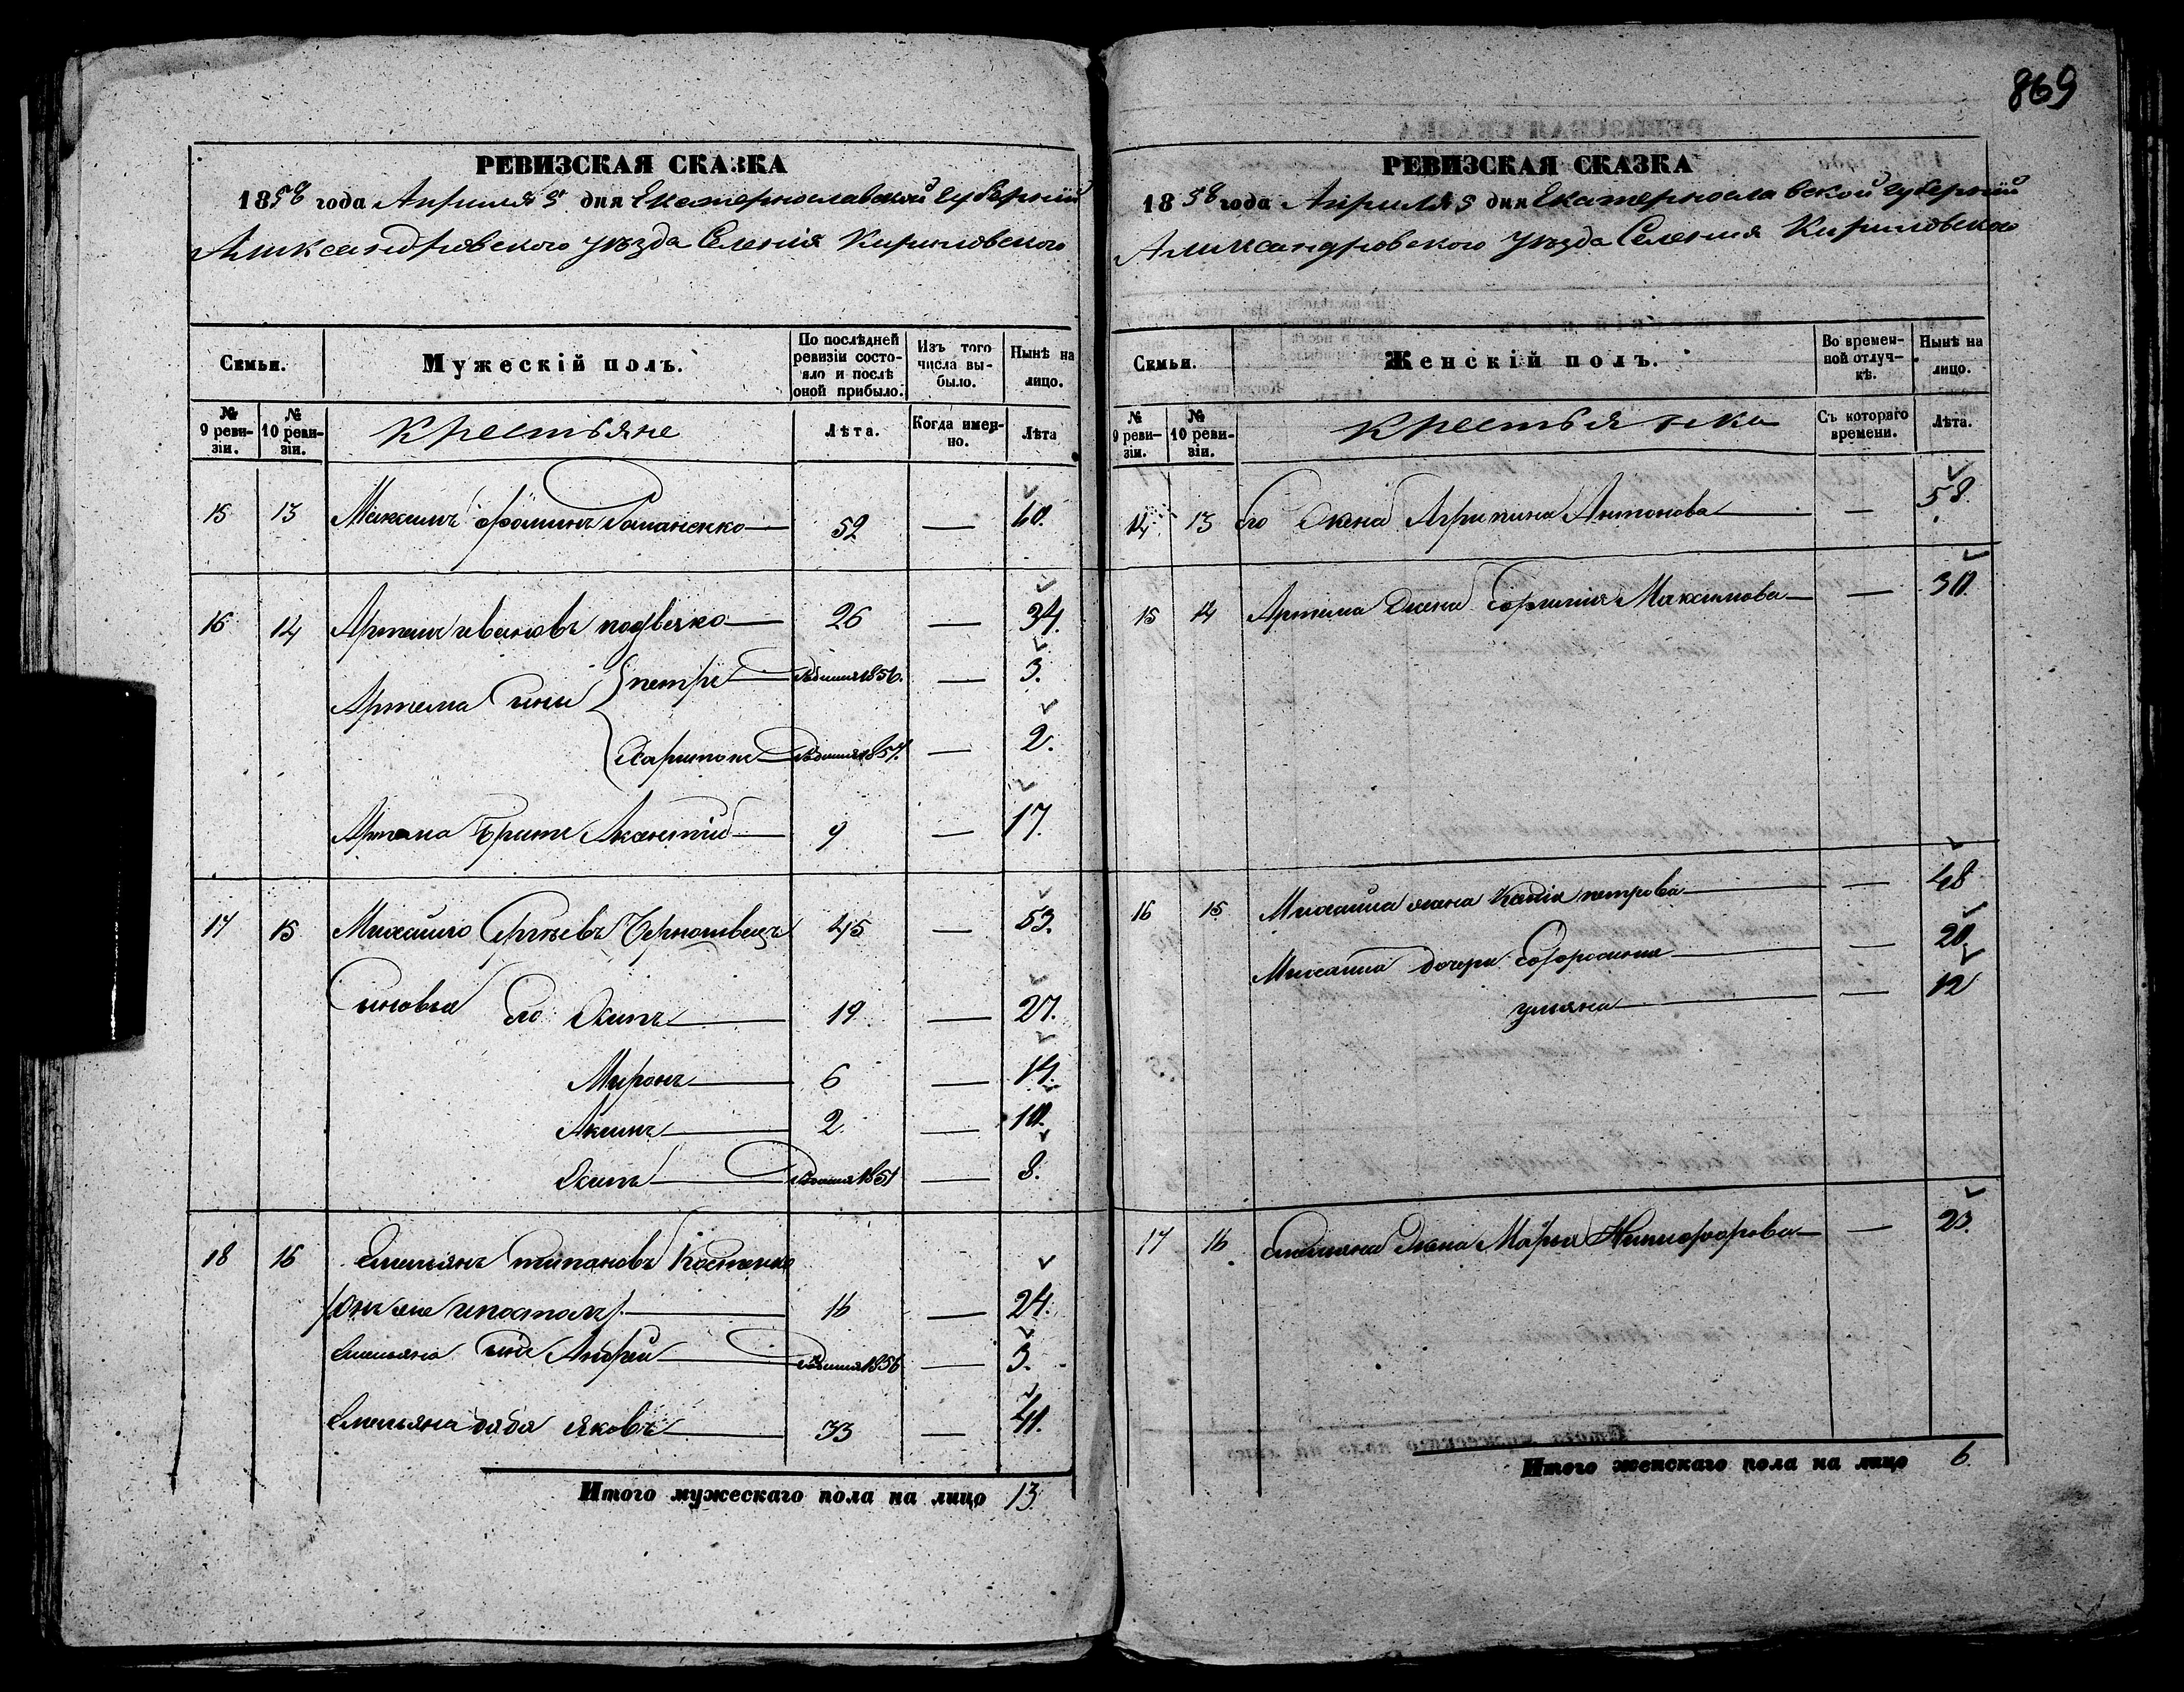 869
РЕВИЗСКАЯ СКАЗКА
1858 года Апреля 5 дня Екатеринославской губерніи
Александровскаго уѣзда Селенія Кириловскаго
Семьи.
Мужескій полъ.
По послѣдней ревизіи состояло и послѣ оной прибыло.
Изъ того числа выбыло.
Нынѣ на лицо.
№ 9 ревизіи.
№ 10 ревизіи.
Крестьяне
Лѣта.
Когда именно.
Лѣта
15 13 Максимъ Фоминъ Романенко 52 — 60.
16 14 Артемъ Ивановъ 26 — 34.
Артема сыны Петръ 1856. — 3.
Харитонъ 1857. — 2.
Артема братъ 9 — 17.
17 15 Михайло Сергѣевъ 45 — 53.
Сыновья его Осипъ 19 — 27.
Миронъ 6 — 14.
Акимъ 2 — 10.
Осипъ 1851 — 8.
18 16 Емельянъ Костенко
(онъ же Апостолъ) 16 — 24.
Емельяна сынъ Андрей 1856 — 3.
Емельяна дядя Яковъ 33 — 41.
Итого мужескаго пола на лицо 13.
РЕВИЗСКАЯ СКАЗКА
1858 года Апреля 5 дня Екатеринославской губерніи
Александровскаго уѣзда Селенія Кириловскаго
Семьи.
Женскій полъ.
Во временной отлучкѣ.
Нынѣ на лицо.
№ 9 ревизіи.
№ 10 ревизіи.
Съ котораго времени.
Лѣта.
14 13 его жена Агрипина Антонова — 58.
15 14 Артема жена Максимова — 30.
16 15 Михайла жена Петрова — 48
Михайла дочери — 20.
Ульяна — 12
17 16 Емельяна жена Марья Никифорова — 23.
Итого женскаго пола на лицо 6.